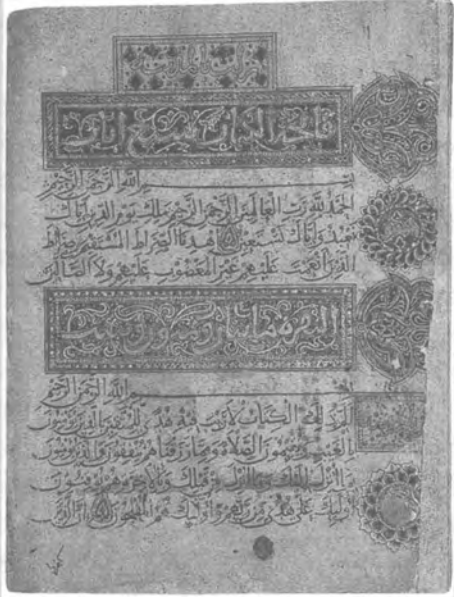 فاتحة الكتاب سبع ايات
بسم الله الرحمن الرحيم
الحمد لله رب العالمين الرحمن الرحيم ملك يوم الدين اياك
نعبد واياك نستعين اهدنا الصراط المستقيم صراط
الذين انعمت عليهم غير المغضوب عليهم ولا الضالين
البقرة مايتان وثمانون وست
بسم الله الرحمن الرحيم
الم ذلك الكتاب لا ريب فيه هدى للمتقين الذين يؤمنون
بالغيب ويقيمون الصلاة ومما رزقناهم ينفقون والذين يؤمنون
بما انزل اليك وما انزل من قبلك وبالاخرة هم يوقنون
اوليك على هدى من ربهم واوليك هم المفلحون ان الذين